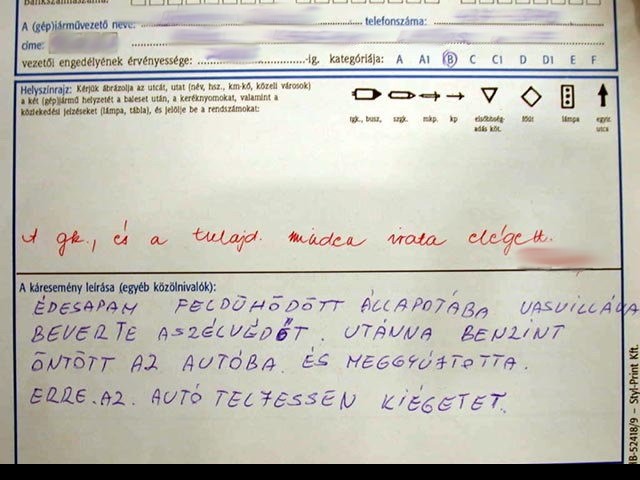 Bankszámlaszáma:
A (gép)járművezető neve: telefonszáma:
címe:
vezetői engedélyének érvényessége: -ig. kategóriája: A A1 B C C1 D D1 E F
Helyszínrajz: Kérjük ábrázolja az utcát, utat (név, hsz., km-kő, közeli városok)
a két (gép)jármű helyzetét a baleset után, a keréknyomokat, valamint a
közlekedési jelzéseket (lámpa, tábla), és jelölje be a rendszámokat:
tgk., busz, szgk. mkp. kp elsőbbség-adás köt. főút lámpa egyir. utca
A gk., és a tulajd. minden irata elégett.
A káresemény leírása (egyéb közölnivalók):
ÉDESAPAM FELDÜHÖDÖTT ÁLLAPOTÁBA VASVILLÁVA
BEVERTE ASZÉLVÉDŐT. UTÁNNA BENZINT
ÖNTÖTT AZ AUTÓBA. ÉS MEGGYÚJTOTTA.
ERRE. AZ. AUTÓ TELJESSEN KIÉGETET.
HB-52418/9 – Styl-Print Kft.